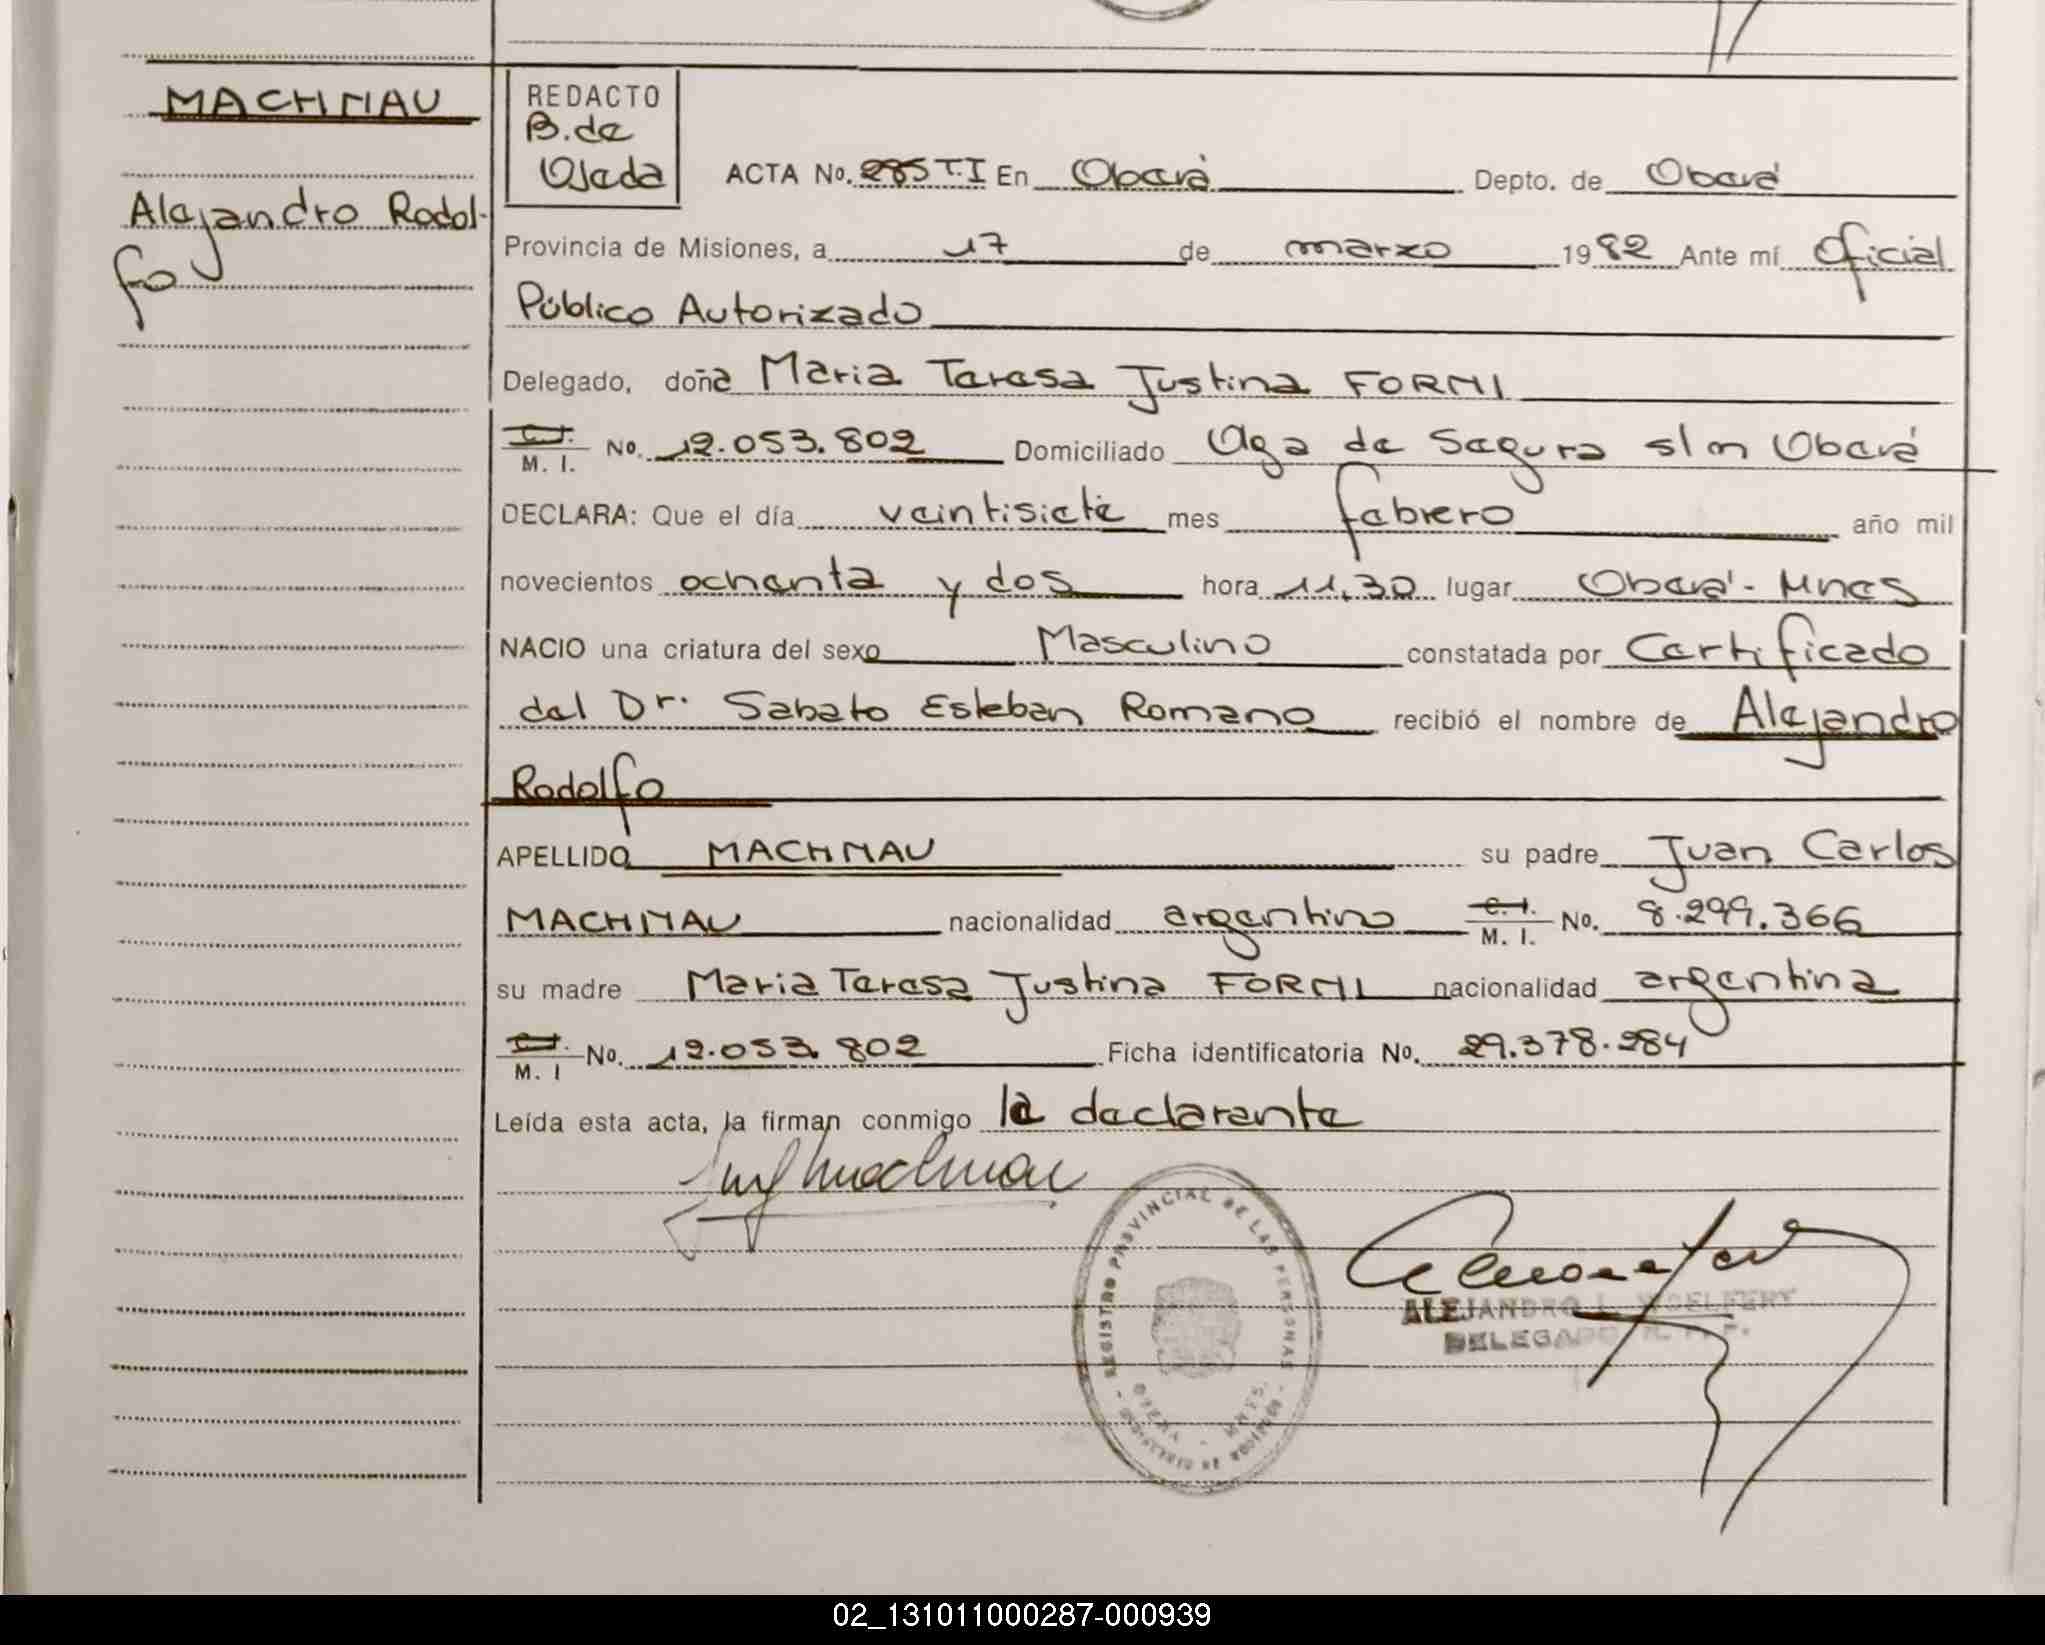 MACHNAU
Alejandro Rodol-
fo
REDACTO
B. de
Ojeda
ACTA No. 285 T.I En Oberá Depto. de Oberá
Provincia de Misiones, a 17 de marzo 1982 Ante mí Oficial
Público Autorizado
Delegado, doña Maria Teresa Justina FORNI
C.I. M. I. No. 12.053.802 Domiciliado Vga de Segura s/n Oberá
DECLARA: Que el día veintisiete mes febrero año mil
novecientos ochenta y dos hora 11,30 lugar Oberá - Mnes
NACIO una criatura del sexo Masculino constatada por Certificado
del Dr. Sabato Esteban Romano recibió el nombre de Alejandro
Rodolfo
APELLIDO MACHNAU su padre Juan Carlos
MACHNAU nacionalidad argentino C.I. M. I. No. 8.299.366
su madre Maria Teresa Justina FORNI nacionalidad argentina
C.I. M. I No. 12.053.802 Ficha identificatoria No. 29.378.284
Leída esta acta, la firman conmigo la declarante
REGISTRO PROVINCIAL DE LAS PERSONAS
OBERA - MNES.
ALEJANDRO L. WOELFERT
DELEGADO R. P. P.
02_131011000287-000939